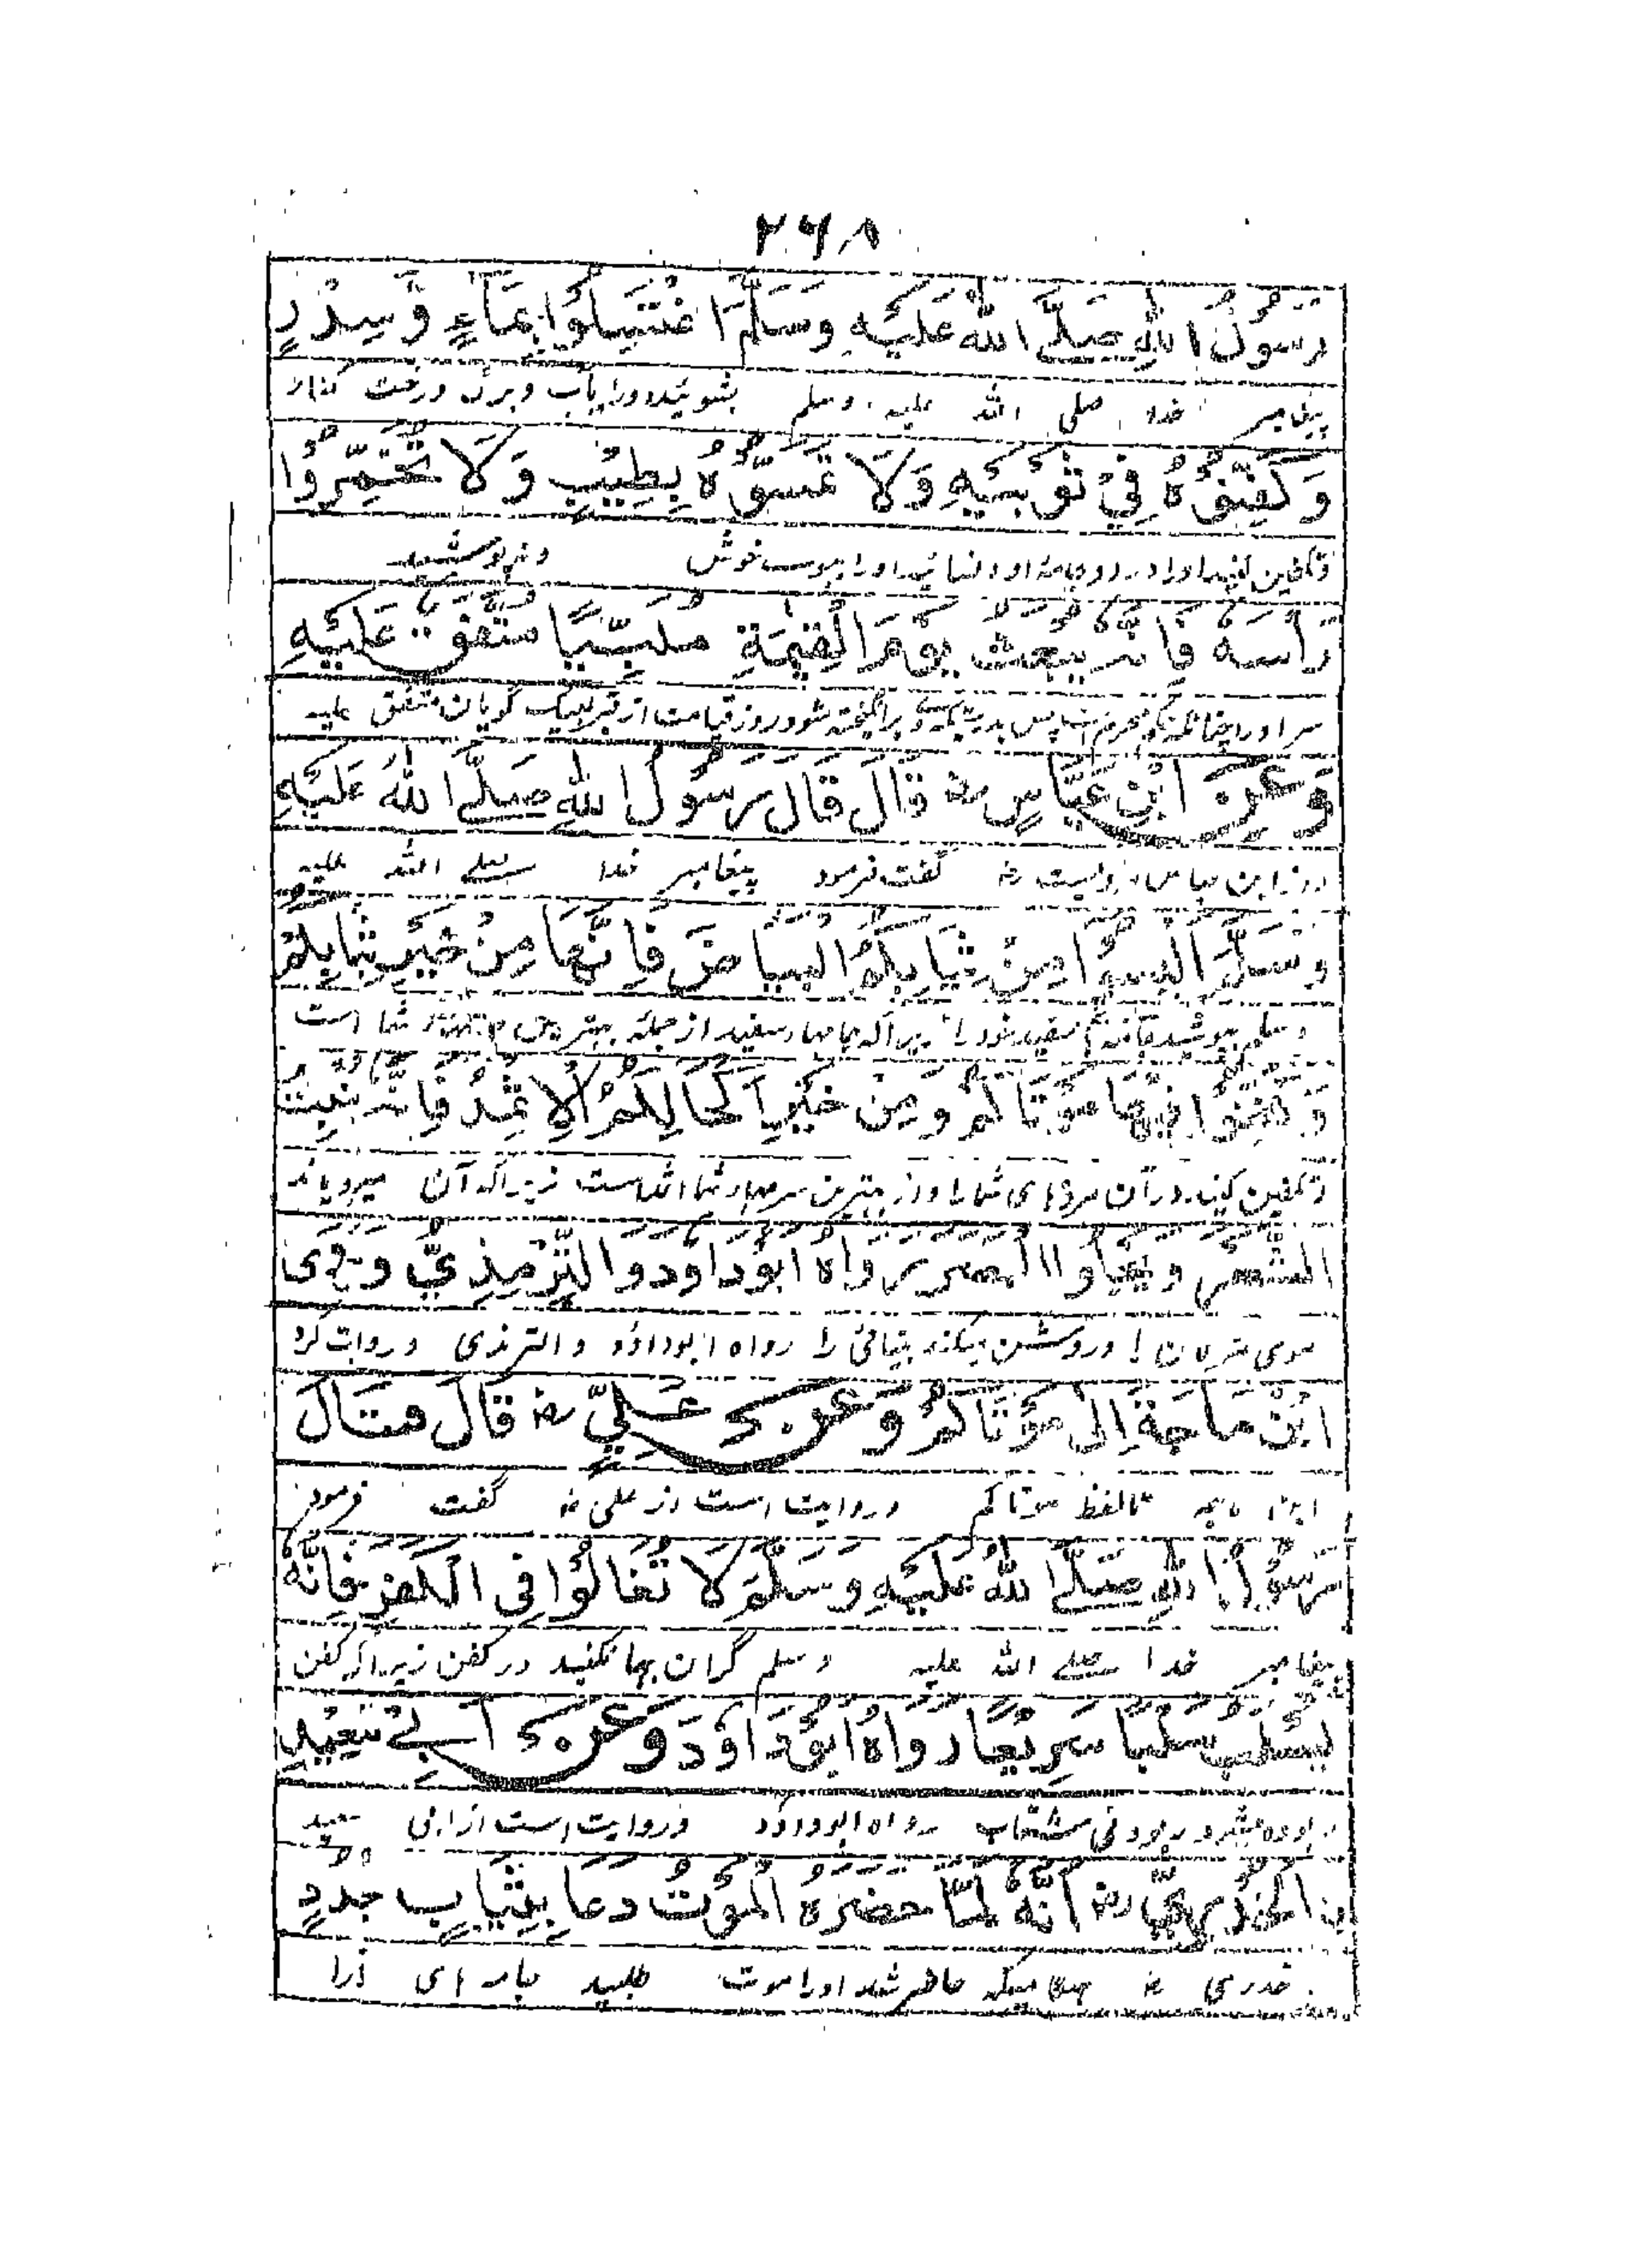 ۲۶۸
رَسُوْلُ اللّٰهِ صَلَّے اللّٰهُ عَلَيْهِ وَسَلَّمَ اغْتَسِلُوْا بِمَاءٍ وَّسِدْرٍ
پیغامبر خدا صلی الله علیه وسلم بشوئید اورا باب وبرگ درخت کنار
وَكَفِّنُوْهُ فِيْ ثَوْبَيْهِ وَلَا تَمَسُّوْهُ بِطِيْبٍ وَلَا تُخَمِّرُوْا
وتکفین کنید اورا در دو جامهٔ او خوش وند پوشید
رَأْسَهٗ فَاِنَّهٗ يُبْعَثُ يَوْمَ الْقِيٰمَةِ مُلَبِّيًا مُتَّفَقٌ عَلَيْهِ
سر اورا پس بدرستیکه برانگیخته شود روز قیامت از قبر لبیک گویان متفق علیه
وَعَنِ ابْنِ عَبَّاسٍ رض قَالَ قَالَ رَسُوْلُ اللّٰهِ صَلَّے اللّٰهُ عَلَيْهِ
وز ابن عباس روایست رض گفت فرمود پیغامبر خدا صلے الله علیه
وَسَلَّمَ الْبَسُوْا مِنْ ثِيَابِكُمُ الْبَيَاضَ فَاِنَّهَا مِنْ خَيْرِ ثِيَابِكُمْ
وسلم بپوشید سفید خود را زیراکه جامها سفید از جمله بهترین شما است
وَكَفِّنُوْا فِيْهَا مَوْتَاكُمْ وَمِنْ خَيْرِ اَكْحَالِكُمُ الْاِثْمِدُ فَاِنَّهٗ يُنْبِتُ
وتکفین کنید در آن مردهای شما را وز بهترین سرمهاء شما اثمد ست زیراکه آن میرویاند
الشَّعْرَ وَيَجْلُوا الْبَصَرَ رَوَاهُ اَبُوْ دَاوٗدَ وَالتِّرْمِذِيُّ وَرَوٰى
موی مژگان را وروشن میکند بینائی را رواه ابوداؤد والترمذی وروایت کرد
ابْنُ مَاجَةَ اِلٰى مَوْتَاكُمْ وَعَنْ عَلِيٍّ رض قَالَ قَالَ
ابن ماجه تا لفظ موتاکم وروایت است از علی رض گفت فرمود
رَسُوْلُ اللّٰهِ صَلَّے اللّٰهُ عَلَيْهِ وَسَلَّمَ لَا تُغَالُوْا فِى الْكَفَنِ فَاِنَّهٗ
پیغامبر خدا صلے الله علیه وسلم گران بها مکنید در کفن زیراکه کفن
يُسْلَبُ سَلْبًا سَرِيْعًا رَوَاهُ اَبُوْ دَاوٗدَ وَعَنْ اَبِيْ سَعِيْدِ
ربوده میشود ربودنی شتاب رواه ابوداؤد وروایت است از ابی سعید
نِ الْخُدْرِيِّ رض اَنَّهٗ لَمَّا حَضَرَهُ الْمَوْتُ دَعَا بِثِيَابٍ جُدُدٍ
خدری رض هنگامیکه حاضر شد اورا موت طلبید جامه ای را